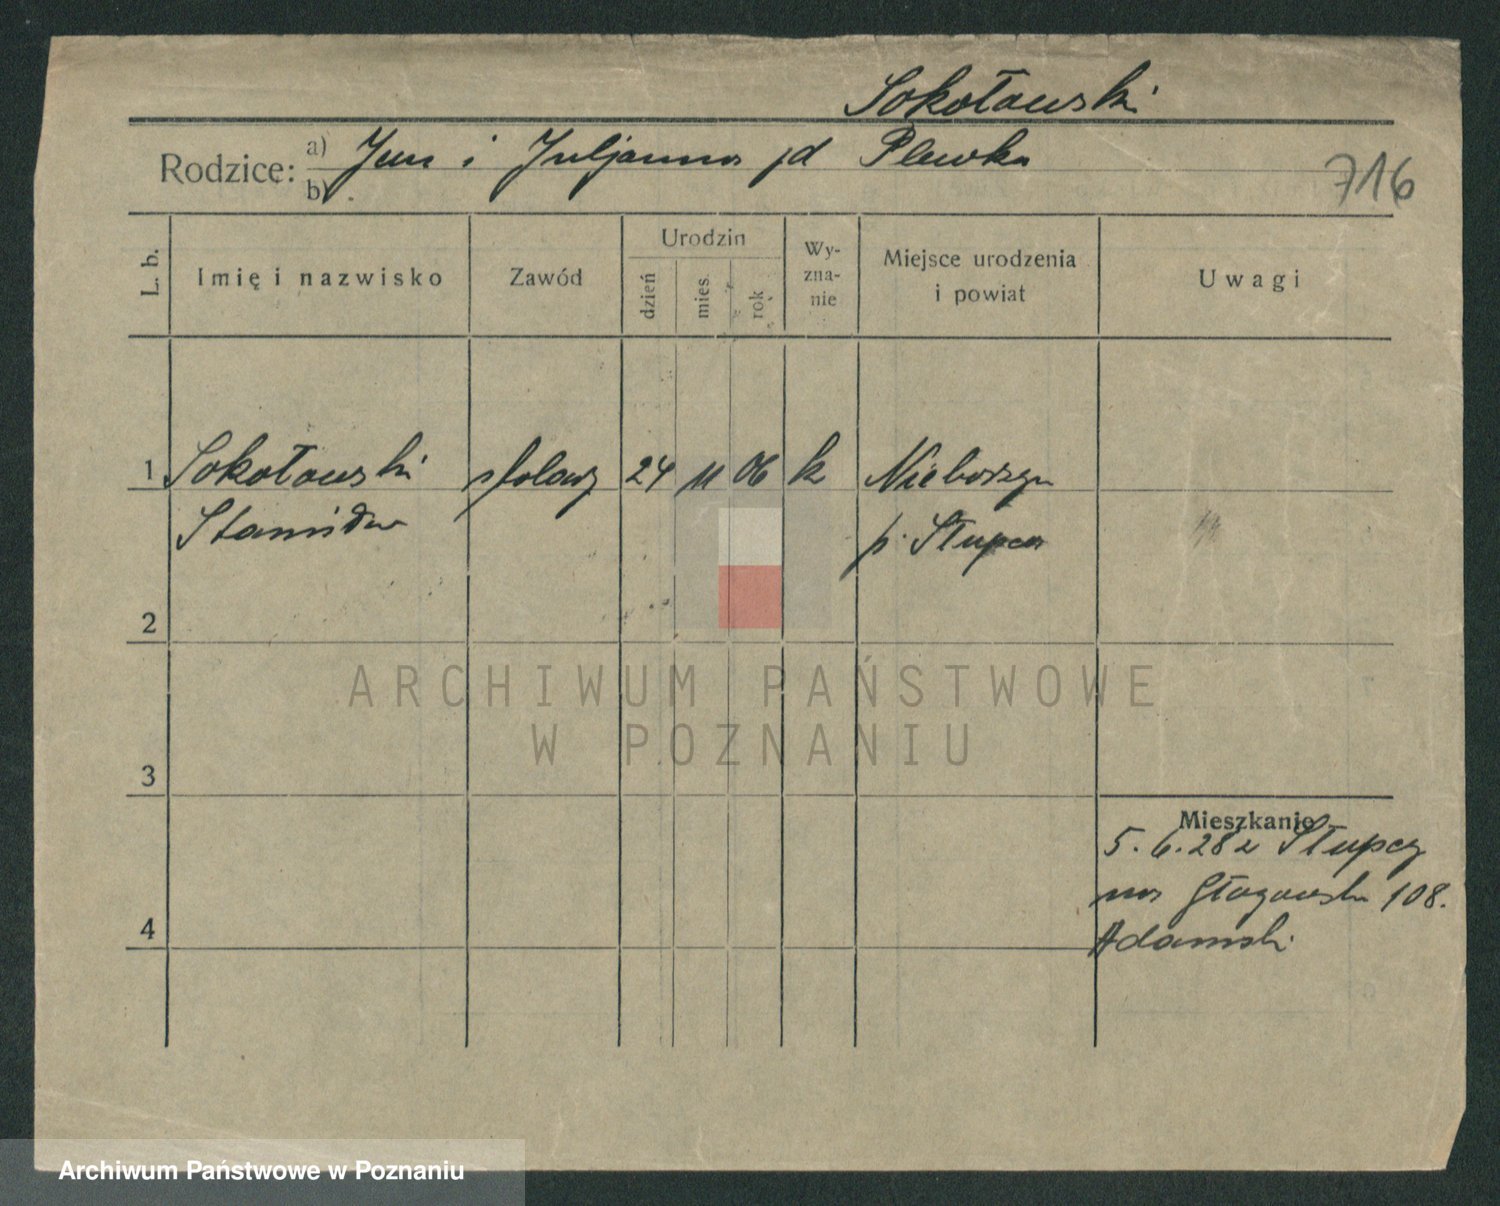 Sokołowski
Rodzice: a) Jan i Juljanna jd Plewka
b)
716
L. b.
Imię i nazwisko
Zawód
Urodzin
dzień
mies.
rok
Wy-
zna-
nie
Miejsce urodzenia
i powiat
Uwagi
1 Sokołowski 24 11 06 k Nieborzyn
Stanisław p. Słupca
2
3
4
Mieszkanie
5.6.28 z Słupcy
na Głogowska 108.
Adamski
ARCHIWUM PAŃSTWOWE
W POZNANIU
Archiwum Państwowe w Poznaniu